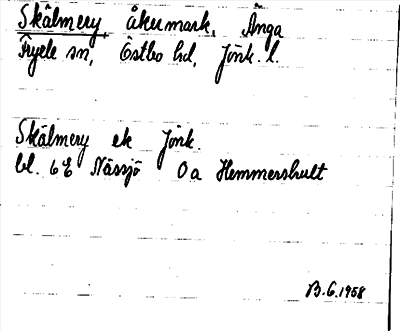 Skälmery, åkermark, Änga
Fryele sn, Östbo hd, Jönk. l.
Skälmery ek Jönk.
bl. 6E Nässjö Oa Hemmershult
B.G. 1958